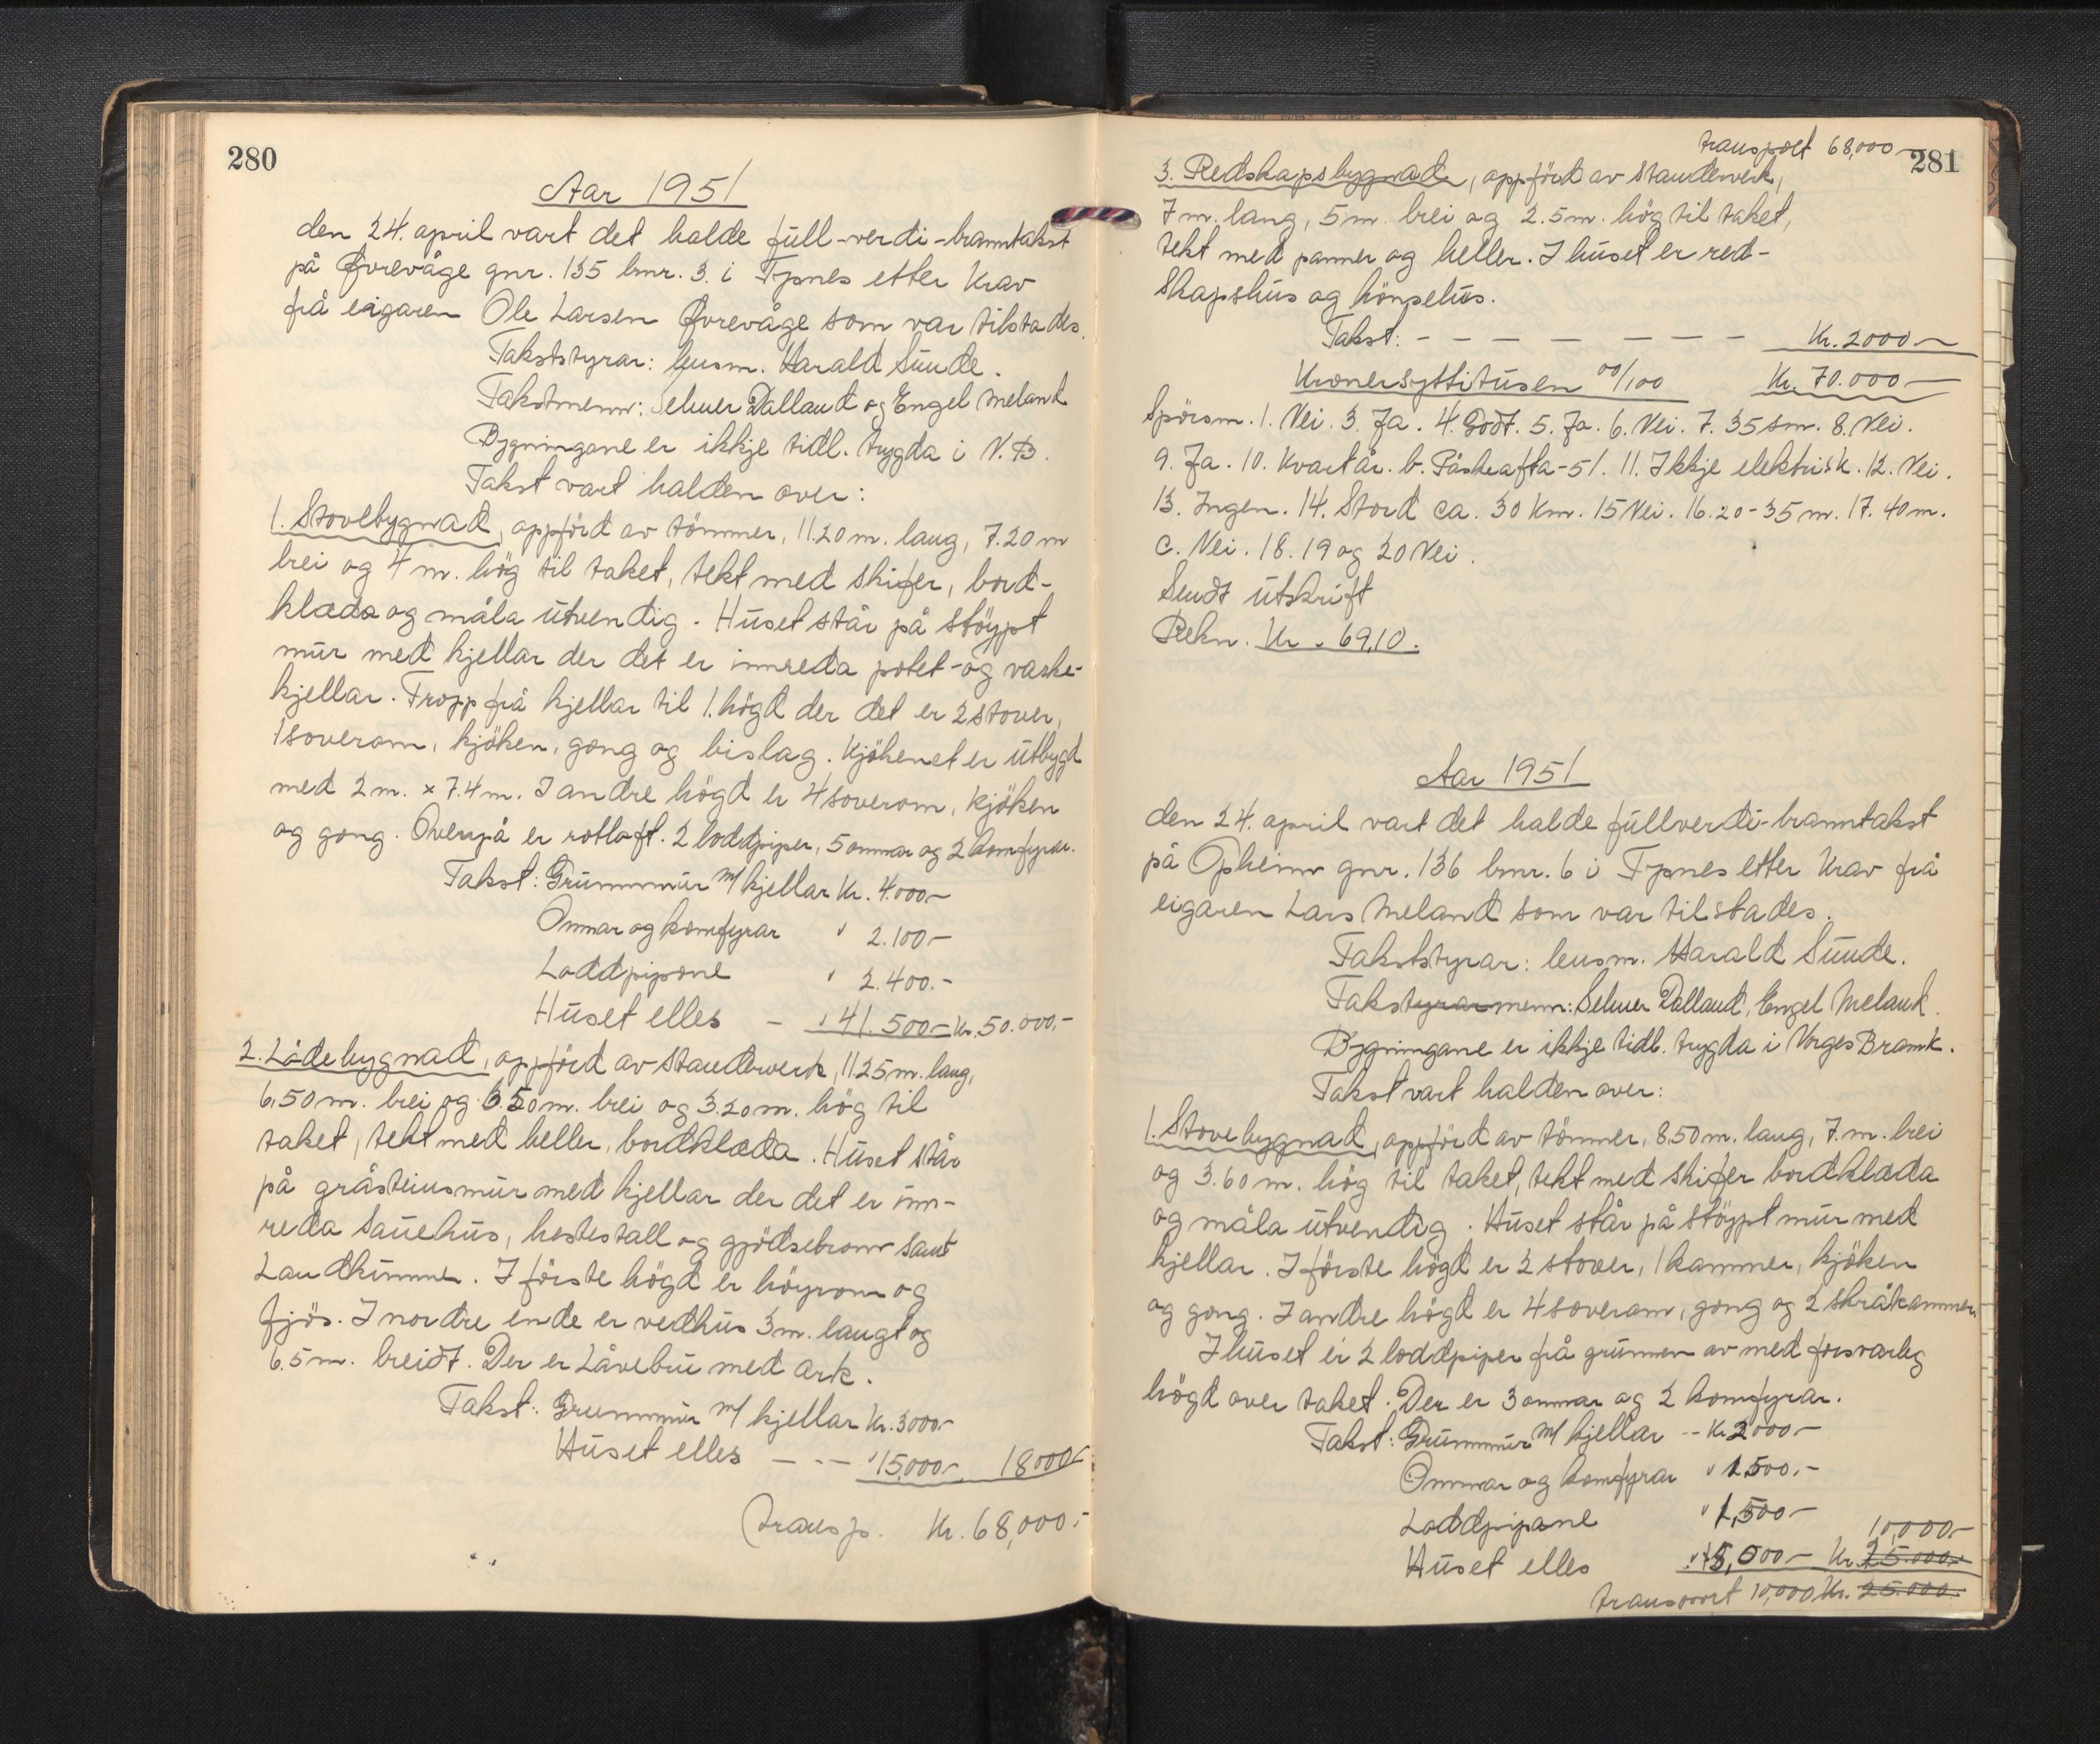 280
Aar 1951
den 24. april vart det halde full-verdi-branntakst
på Øvrevåge gnr. 135 bnr. 3. i Tysnes etter krav
frå eigaren Ole Larsen Øvrevåge som var tilstades.
Takststyrar: lensm. Harald Sunde.
Takstmenn: Selmer Dalland og Engel Meland
Bygningane er ikkje tidl. trygda i N.B.
Takst vart halden over:
1. Stovebygnad, oppförd av tömmer, 11.20 m. lang, 7.20 m
brei og 4 m. hög til taket, tekt med skifer, bord-
klædde og måla utvendig. Huset står på stöypt
mur med kjellar der det er innreda potet- og vaske-
kjellar. Tropp frå kjellar til 1. högd der det er 2 stover,
1 soverom, kjöken, gong og bislag. Kjökenet er utbygd
med 2 m. x 7.4 m. I andre högd er 4 soverom, kjöken
og gong. Ovenpå er rotloft. 2 loddpiper, 5 omnar og 2 komfyrar.
Takst: Grunnmur m/ kjellar Kr. 4.000-
Omnar og komfyrar " 2.100-
Loddpipone " 2.400.-
Huset elles - " 41.500- Kr. 50.000,-
2. Lödebygnad, oppförd av standerverk, 11.25 m. lang,
6,50 m. brei og 6.50 m. brei og 3.20 m. hög til
taket, tekt med heller, bordklæda. Huset står
på gråsteinsmur med kjellar der det er inn-
reda sauehus, hestestall og gjödselrom samt
Landkummer. I förste högd er höyrom og
fjös. I nordre ende er vedhus 3 m. langt og
6.5 m. breidt. Der er Låvebru med ark.
Takst: Grunnmur m/ kjellar Kr. 3000-
Huset elles - - - " 15.000- 18000-
transp. Kr. 68,000.-
transport 68,000-
281
3. Redskapsbygnad, oppförd av standerverk,
7 m. lang, 5 m. brei og 2.5 m. hög til taket,
tekt med panner og heller. I huset er red-
skapshus og hönsehus.
Takst: - - - - - - - Kr. 2000-
Kronersyttitusen 00/100 Kr. 70.000-
Spörsm. 1. Nei. 3. Ja. 4. Godt. 5. Ja. 6. Nei. 7. 35 sm. 8. Nei.
9. Ja. 10. Kvart år. b. Påskeafta-51. 11. Ikkje elektrisk. 12. Nei.
13. Ingen. 14. Stord ca. 30 Km. 15 Nei. 16. 20-35 m. 17. 40 m.
c. Nei. 18. 19 og 20 Nei.
Sendt utskrift
Rekn. Kr. 69,10.
Aar 1951
den 24. april vart det halde fullverdi-branntakst
på Opheim gnr. 136 bnr. 6 i Tysnes etter krav frå
eigaren Lars Meland som var tilstades.
Takststyrar: lensm. Harald Sunde.
Takstyrarmenn: Selmer Dalland, Engel Meland.
Bygningane er ikkje tidl. trygda i Norges Brannk.
Takst vart halden over:
1. Stovebygnad, oppförd av tömmer, 8,50 m. lang, 7. m. brei
og 3.60 m. hög til taket, tekt med skifer bordklæda
og måla utvendig. Huset står på stöypt mur med
kjellar. I förste högd er 2 stover, 1 kammer, kjöken
og gong. I andre högd er 4 soverom, gong og 2 skråkammer.
I huset er 2 loddpiper frå grunnen av med forsvarleg
högd over taket. Der er 3 omnar og 2 komfyrar.
Takst: Grunnmur m/ kjellar -- Kr. 2000-
Omnar og komfyrar " 1.500.-
Loddpipane " 1,500-
Huset elles " 5,000- Kr. 25.000.- 10,000-
transport 10,000 Kr. 25.000.